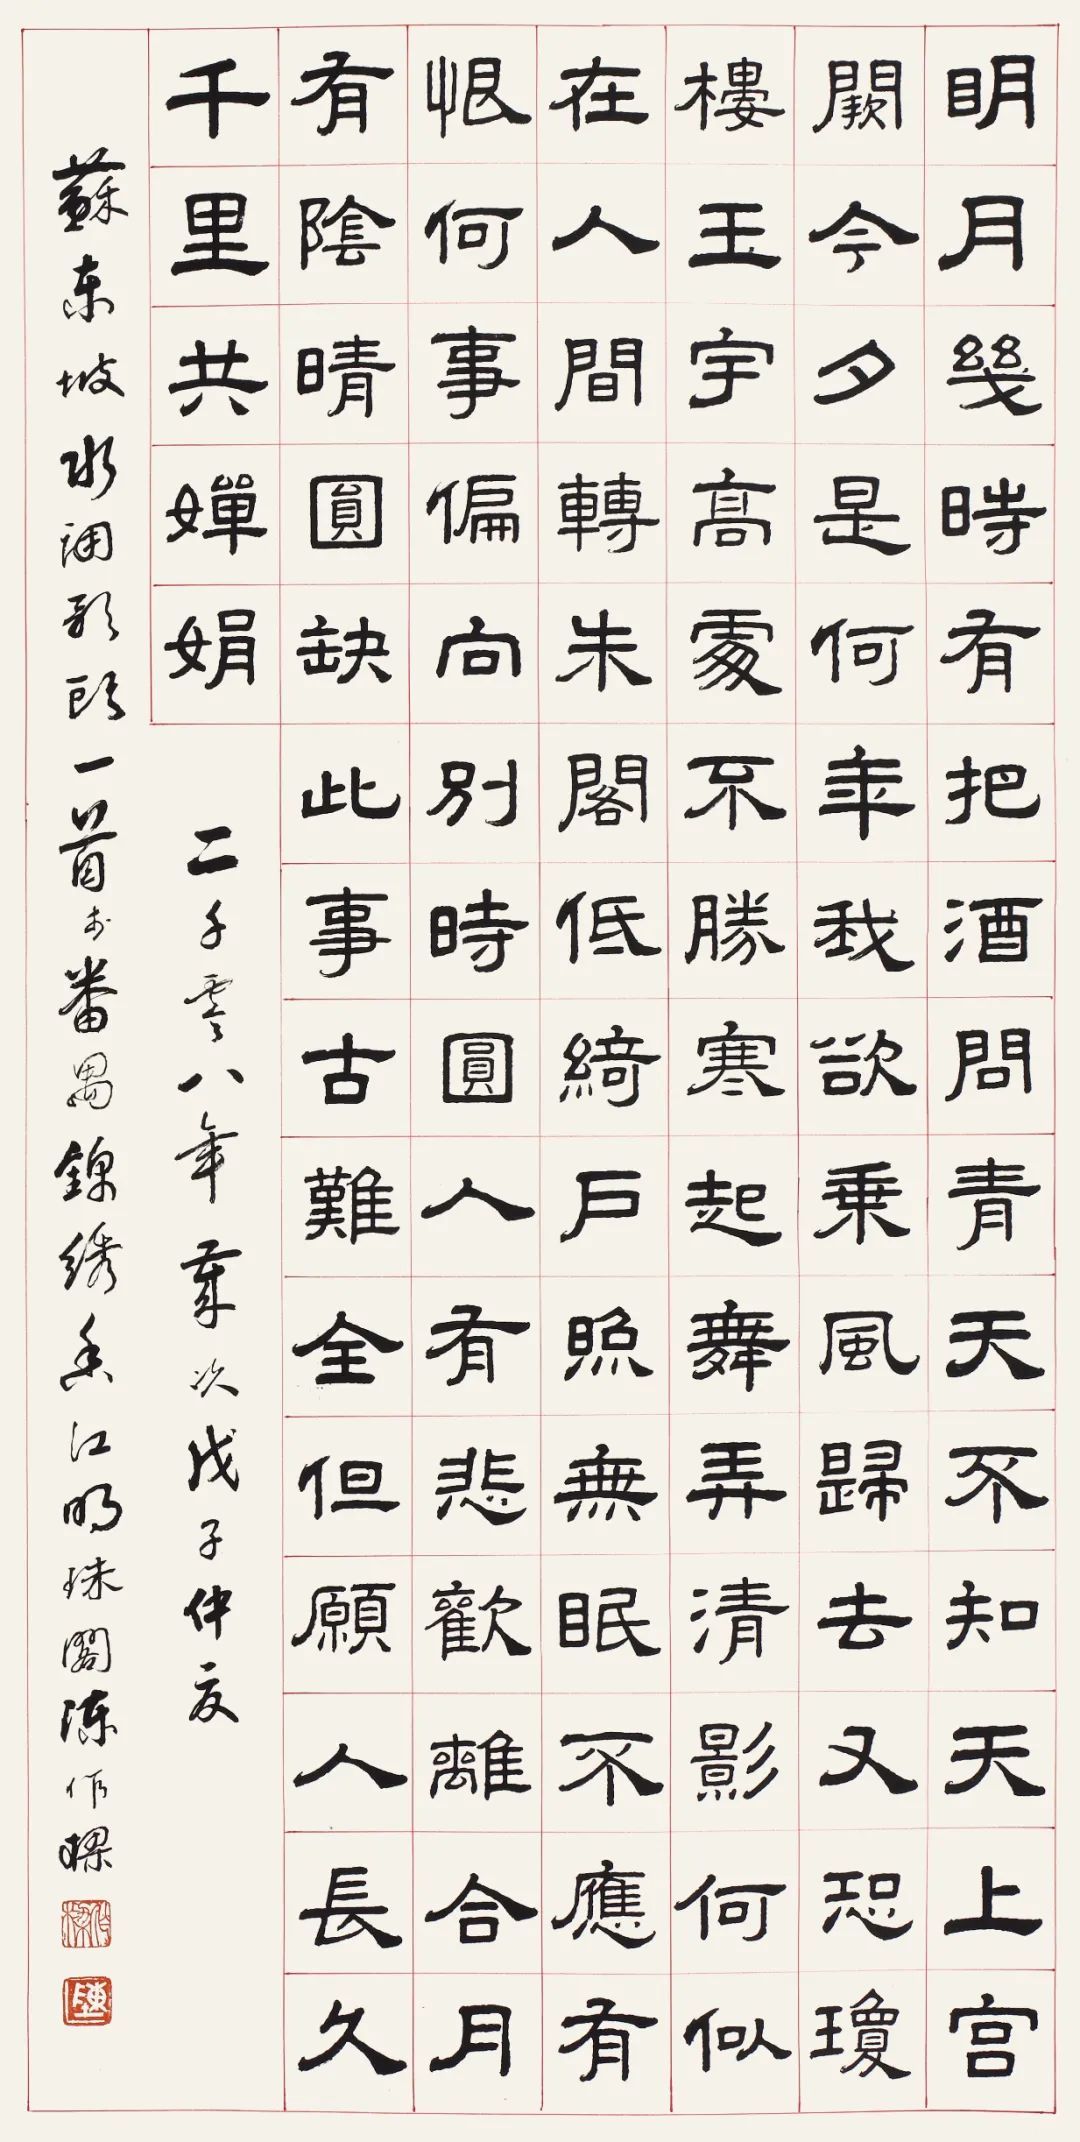 明月幾時有把酒問青天不知天上宫
闕今夕是何年我欲乘風歸去又恐瓊
樓玉宇高處不勝寒起舞弄清影何似
在人間轉朱閣低綺户照無眠不應有
恨何事偏向別時圓人有悲歡離合月
有陰晴圓缺此事古難全但願人長久
千里共嬋娟
二千零八年歲次戊子仲夏
蘇東坡水調歌頭一首於番禺錦綉香江明珠閣陳作樑